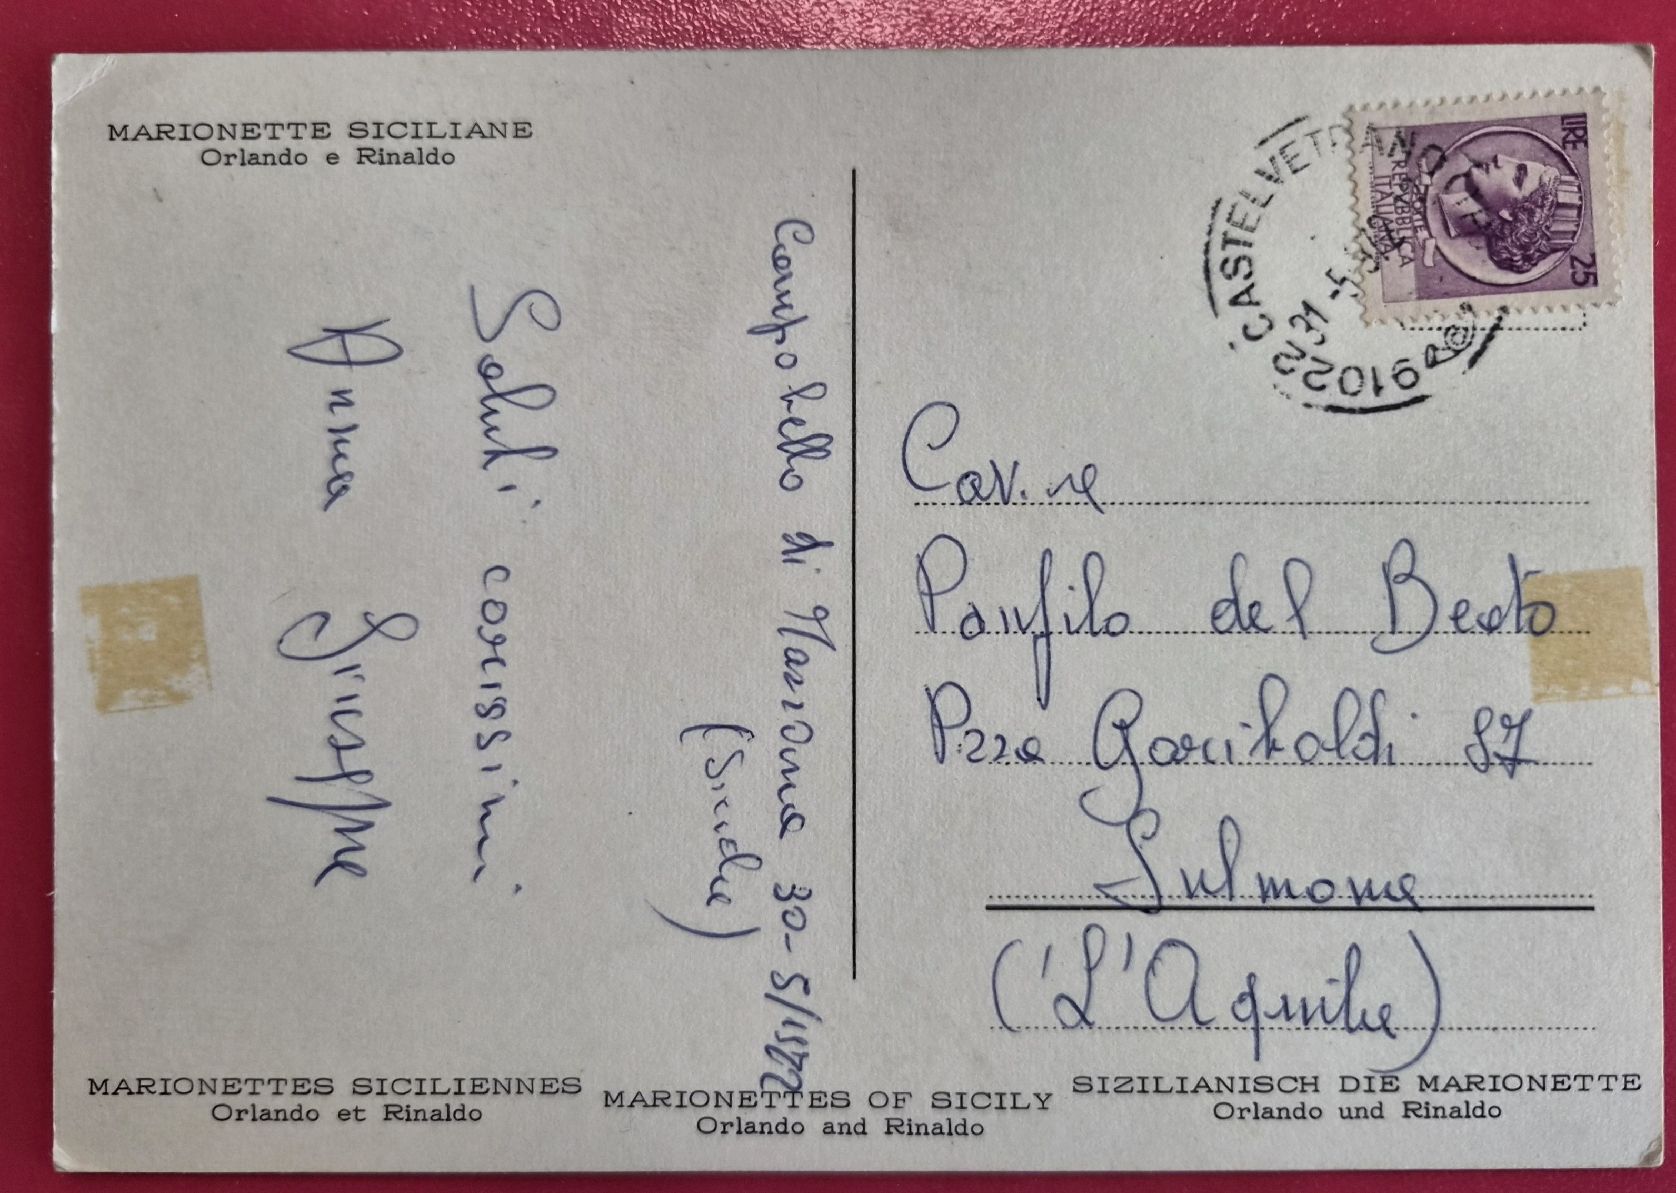 MARIONETTE SICILIANE
Orlando e Rinaldo
Campobello di Mazzara 30-5/1972
(Sicilia)
Saluti carissimi
Anna Giuseppe
LIRE 25
REPVBBLICA
ITALIANA
91022 CASTELVETRANO (TP)
31 -5
Cav.re
Panfilo del Beato
P.zza Garibaldi 87
Sulmona
(L'Aquila)
MARIONETTES SICILIENNES
Orlando et Rinaldo
MARIONETTES OF SICILY
Orlando and Rinaldo
SIZILIANISCH DIE MARIONETTE
Orlando und Rinaldo